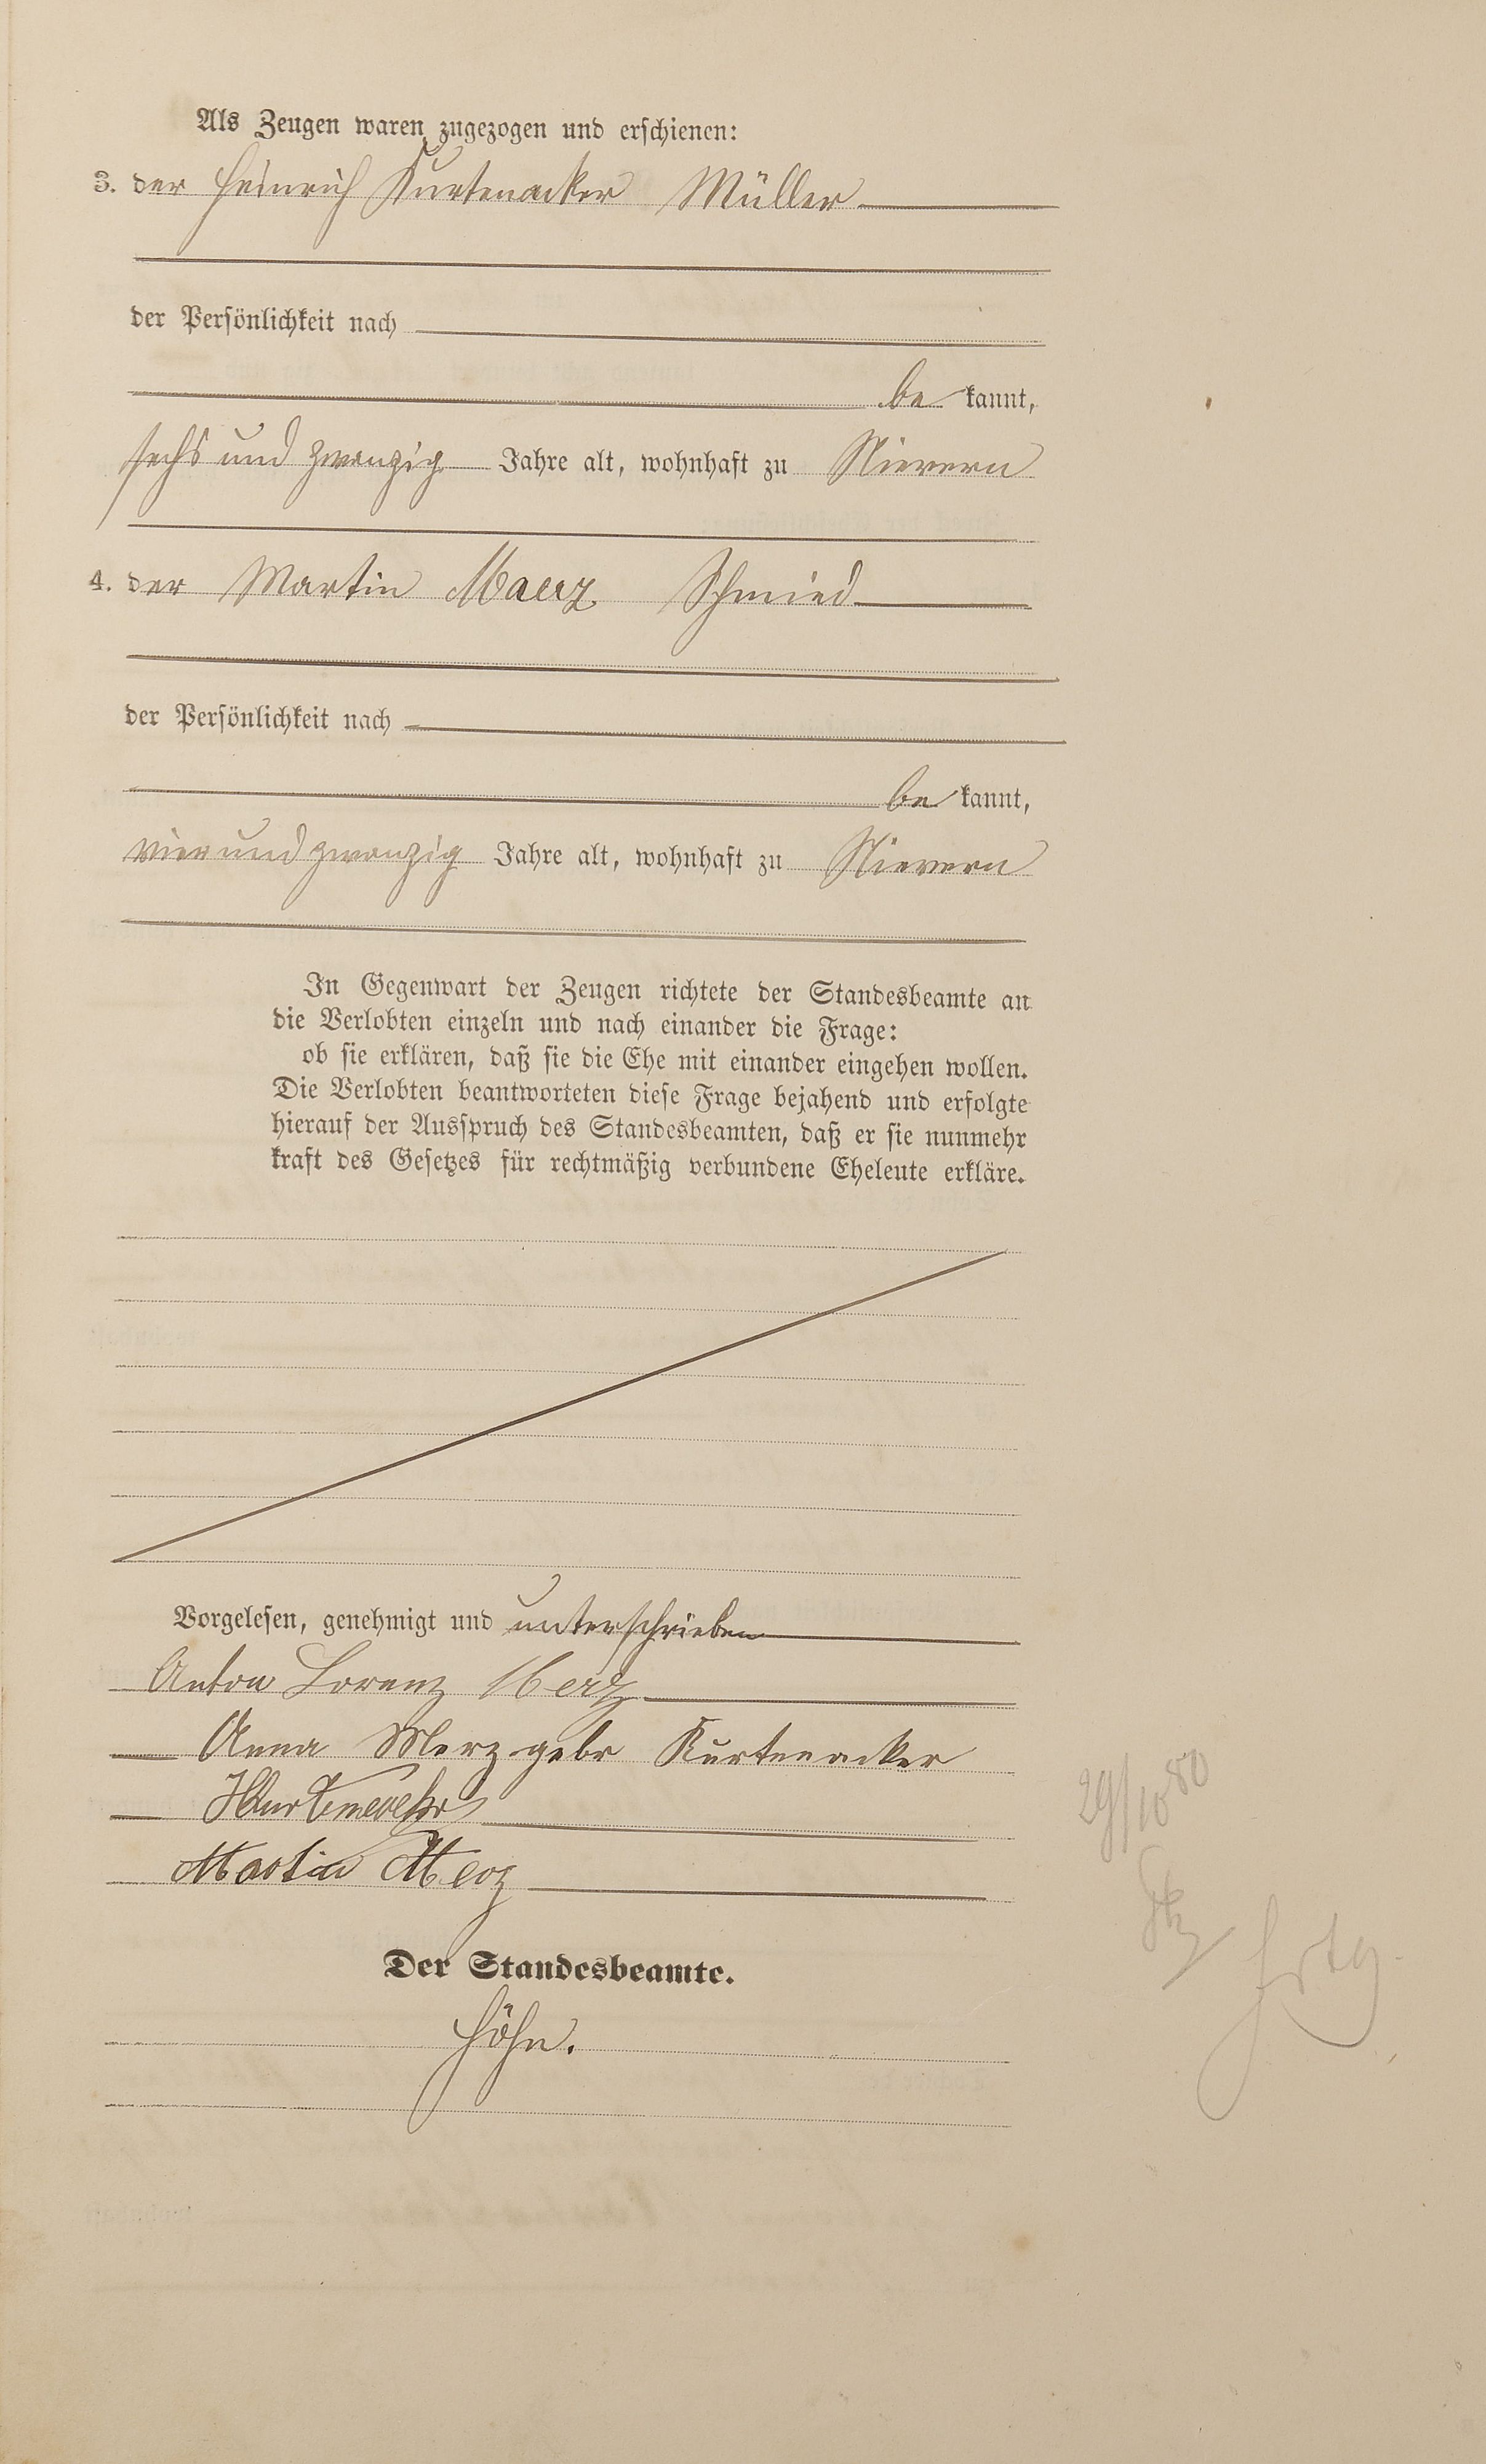 Als Zeugen waren zugezogen und erschienen:
3. der Heinrich Kurtenacker Müller
der Persönlichkeit nach
be kannt,
sechs und zwanzig Jahre alt, wohnhaft zu Nievern
4. der Martin Maerz Schmied
der Persönlichkeit nach
be kannt,
vier und zwanzig Jahre alt, wohnhaft zu Nievern
In Gegenwart der Zeugen richtete der Standesbeamte an
die Verlobten einzeln und nach einander die Frage:
ob sie erklären, daß sie die Ehe mit einander eingehen wollen.
Die Verlobten beantworteten diese Frage bejahend und erfolgte
hierauf der Ausspruch des Standesbeamten, daß er sie nunmehr
kraft des Gesetzes für rechtmäßig verbundene Eheleute erkläre.
Vorgelesen, genehmigt und unterschrieben
Anton Lorenz Merz
Anna Merz gebr Kurtenacker
Martin Merz
29/10 80
Der Standesbeamte.
Höhn.